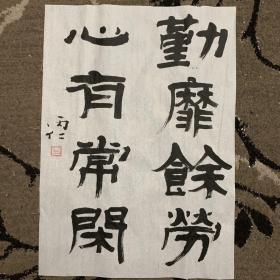 勤靡餘勞
心有常閑
丙仁